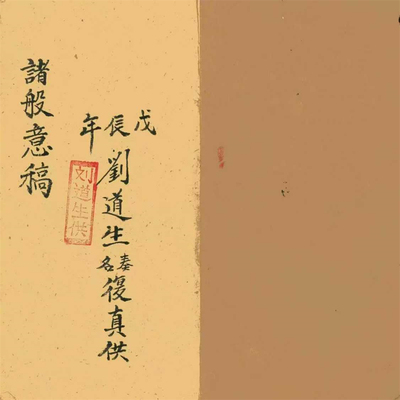 戊辰年
劉道生奏名復真供
諸般意稿
刘道生供